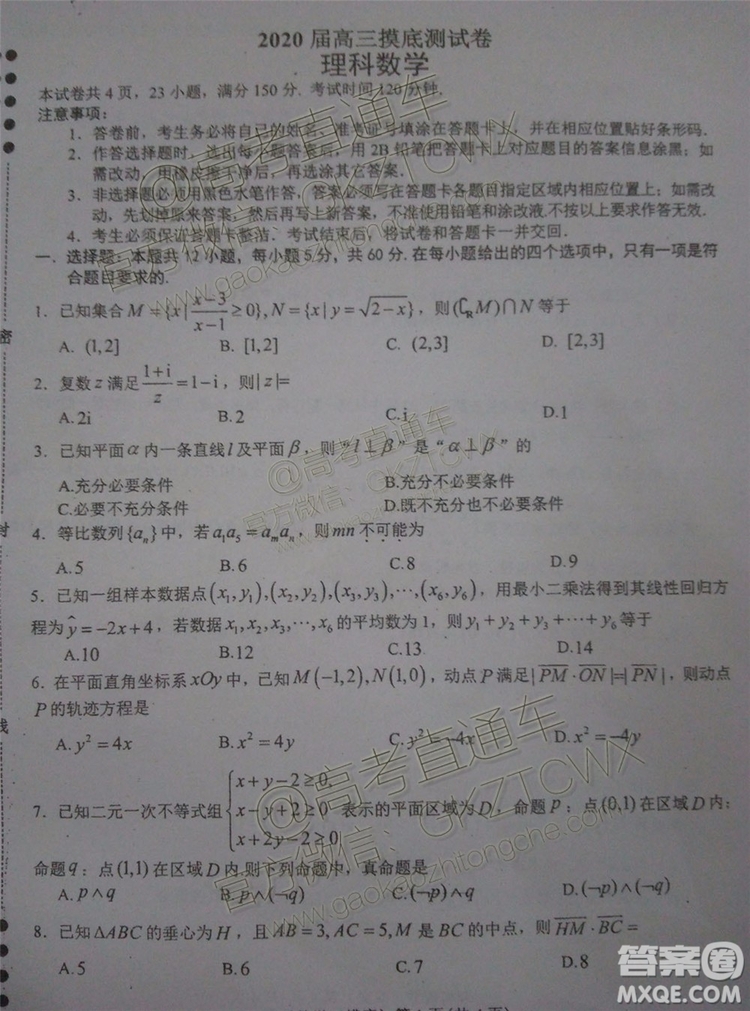 2020 届高三摸底测试卷
理科数学
本试卷共 4 页，23 小题，满分 150 分. 考试时间 120 分钟.
注意事项：
1. 答卷前，考生务必将自己的姓名、准考证号填涂在答题卡上，并在相应位置贴好条形码.
2. 作答选择题时，选出每小题答案后，用 2B 铅笔把答题卡上对应题目的答案信息涂黑；如
需改动，用橡皮擦干净后，再选涂其它答案.
3. 非选择题必须用黑色水笔作答，答案必须写在答题卡各题目指定区域内相应位置上；如需改
动，先划掉原来答案，然后再写上新答案，不准使用铅笔和涂改液.不按以上要求作答无效.
4. 考生必须保证答题卡整洁. 考试结束后，将试卷和答题卡一并交回.
一. 选择题：本题共 12 小题，每小题 5 分，共 60 分. 在每小题给出的四个选项中，只有一项是符
合题目要求的.
1. 已知集合 M = {x | (x−3)/(x−1) ≥ 0}, N = {x | y = √(2−x)}，则 (∁_R M) ∩ N 等于
A. (1,2] B. [1,2] C. (2,3] D. [2,3]
2. 复数 z 满足 (1+i)/z = 1−i，则 | z |=
A.2i B.2 C.i D.1
3. 已知平面 α 内一条直线 l 及平面 β，则“ l ⊥ β ”是“ α ⊥ β ”的
A.充分必要条件 B.充分不必要条件
C.必要不充分条件 D.既不充分也不必要条件
4. 等比数列 {aₙ} 中，若 a₁a₅ = aₘaₙ，则 mn 不可能为
A.5 B.6 C.8 D.9
5. 已知一组样本数据点 (x₁,y₁),(x₂,y₂),(x₃,y₃),⋯,(x₆,y₆)，用最小二乘法得到其线性回归方
程为 ŷ = −2x + 4，若数据 x₁,x₂,x₃,⋯,x₆ 的平均数为 1，则 y₁ + y₂ + y₃ + ⋯ + y₆ 等于
A.10 B.12 C.13 D.14
6. 在平面直角坐标系 xOy 中，已知 M(−1,2), N(1,0)，动点 P 满足 | PM · ON |=| PN |，则动点
P 的轨迹方程是
A. y² = 4x B. x² = 4y C. y² = −4x D. x² = −4y
7. 已知二元一次不等式组 { x + y − 2 ≥ 0,
x − y + 2 ≥ 0 表示的平面区域为 D，命题 p：点 (0,1) 在区域 D 内；
x + 2y − 2 ≥ 0
命题 q：点 (1,1) 在区域 D 内.则下列命题中，真命题是
A. p ∧ q B. p ∧ (¬q) C. (¬p) ∧ q D. (¬p) ∧ (¬q)
8. 已知 ΔABC 的垂心为 H，且 AB = 3, AC = 5, M 是 BC 的中点，则 HM · BC =
A.5 B.6 C.7 D.8
密
封
线
@高考直通车
官方微信：GKZTCWX
www.gaokaozhitongche.com
@高考直通车
官方微信：GKZTCWX
@高考直通车
官方微信：GKZTCWX
www.gaokaozhitongche.com
答案圈
MXQE.COM